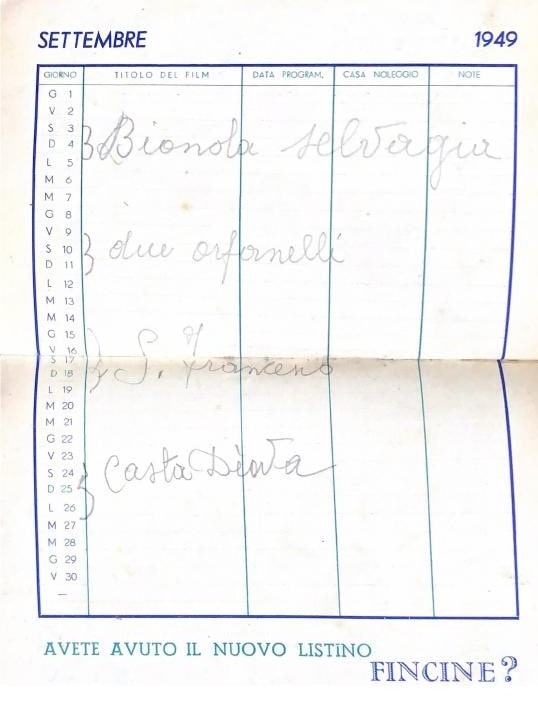 SETTEMBRE 1949
GIORNO TITOLO DEL FILM DATA PROGRAM. CASA NOLEGGIO NOTE
G 1
V 2
S 3
D 4 Bionola selvagia
L 5
M 6
M 7
G 8
V 9
S 10 due orfanelli
D 11
L 12
M 13
M 14
G 15
V 16
S 17
D 18 S. Franceno
L 19
M 20
M 21
G 22
V 23
S 24 Casta Diva
D 25
L 26
M 27
M 28
G 29
V 30
—
AVETE AVUTO IL NUOVO LISTINO
FINCINE?